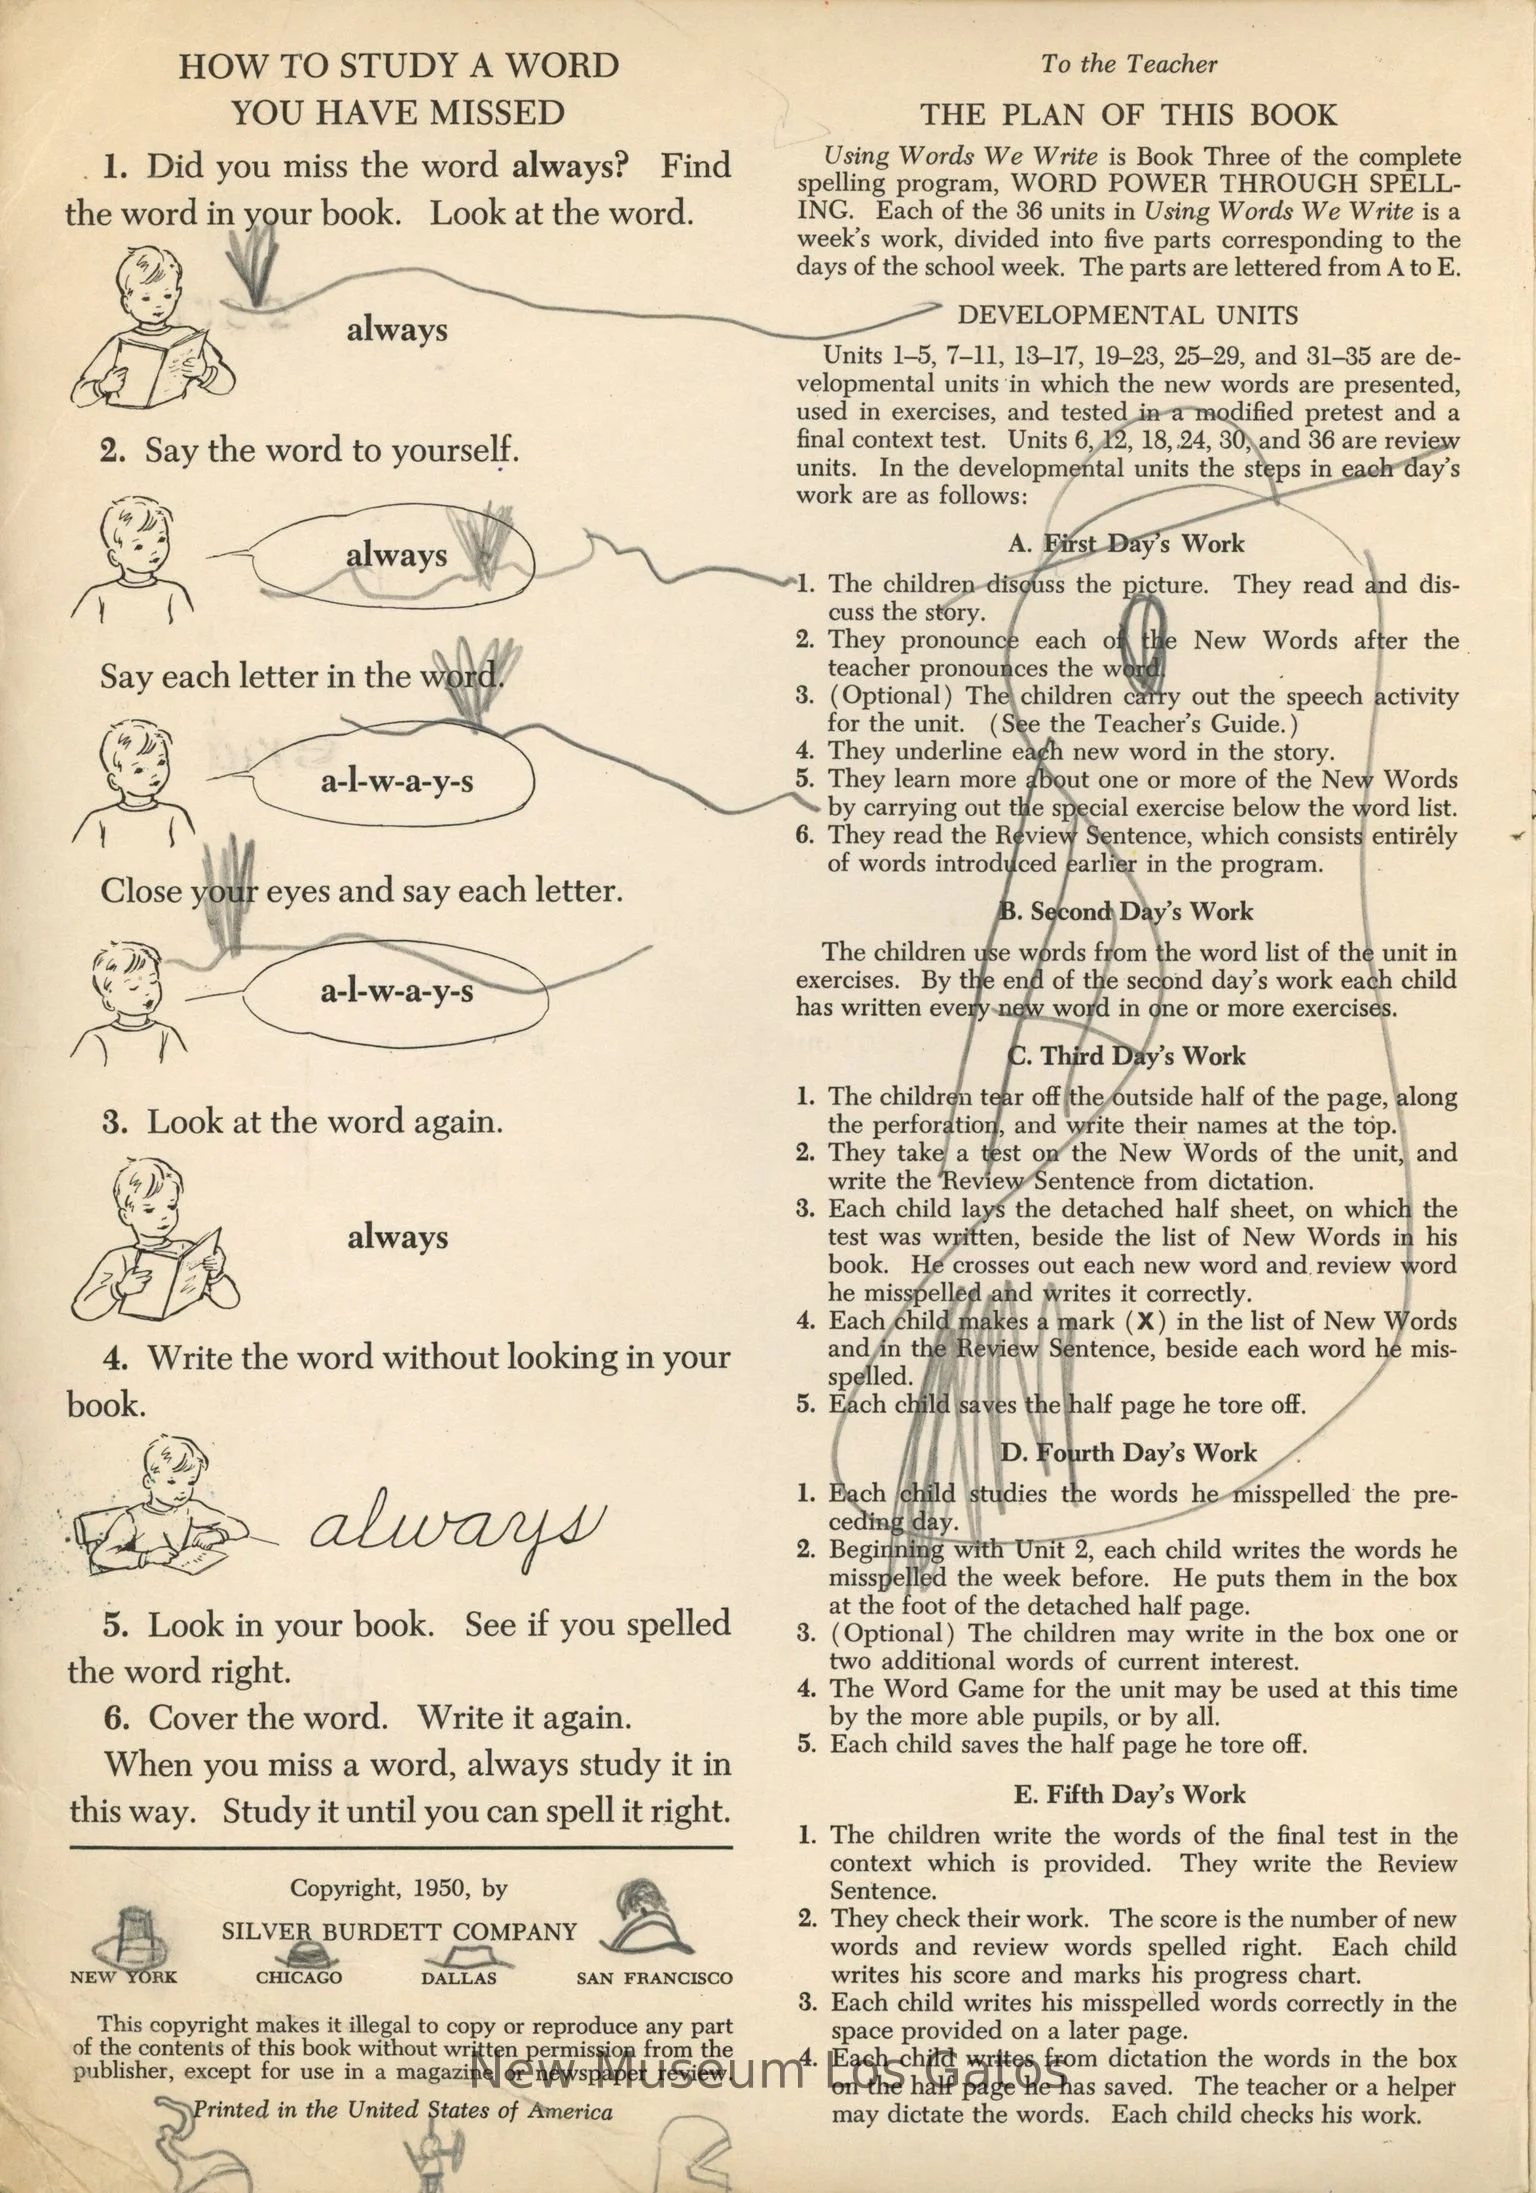 HOW TO STUDY A WORD
YOU HAVE MISSED
1. Did you miss the word always? Find
the word in your book. Look at the word.
always
2. Say the word to yourself.
always
Say each letter in the word.
a-l-w-a-y-s
Close your eyes and say each letter.
a-l-w-a-y-s
3. Look at the word again.
always
4. Write the word without looking in your
book.
always
5. Look in your book. See if you spelled
the word right.
6. Cover the word. Write it again.
When you miss a word, always study it in
this way. Study it until you can spell it right.
Copyright, 1950, by
SILVER BURDETT COMPANY
NEW YORK CHICAGO DALLAS SAN FRANCISCO
This copyright makes it illegal to copy or reproduce any part
of the contents of this book without written permission from the
publisher, except for use in a magazine or newspaper review.
Printed in the United States of America
To the Teacher
THE PLAN OF THIS BOOK
Using Words We Write is Book Three of the complete
spelling program, WORD POWER THROUGH SPELL-
ING. Each of the 36 units in Using Words We Write is a
week's work, divided into five parts corresponding to the
days of the school week. The parts are lettered from A to E.
DEVELOPMENTAL UNITS
Units 1–5, 7–11, 13–17, 19–23, 25–29, and 31–35 are de-
velopmental units in which the new words are presented,
used in exercises, and tested in a modified pretest and a
final context test. Units 6, 12, 18, 24, 30, and 36 are review
units. In the developmental units the steps in each day's
work are as follows:
A. First Day's Work
1. The children discuss the picture. They read and dis-
cuss the story.
2. They pronounce each of the New Words after the
teacher pronounces the word.
3. (Optional) The children carry out the speech activity
for the unit. (See the Teacher's Guide.)
4. They underline each new word in the story.
5. They learn more about one or more of the New Words
by carrying out the special exercise below the word list.
6. They read the Review Sentence, which consists entirely
of words introduced earlier in the program.
B. Second Day's Work
The children use words from the word list of the unit in
exercises. By the end of the second day's work each child
has written every new word in one or more exercises.
C. Third Day's Work
1. The children tear off the outside half of the page, along
the perforation, and write their names at the top.
2. They take a test on the New Words of the unit, and
write the Review Sentence from dictation.
3. Each child lays the detached half sheet, on which the
test was written, beside the list of New Words in his
book. He crosses out each new word and review word
he misspelled and writes it correctly.
4. Each child makes a mark (X) in the list of New Words
and in the Review Sentence, beside each word he mis-
spelled.
5. Each child saves the half page he tore off.
D. Fourth Day's Work
1. Each child studies the words he misspelled the pre-
ceding day.
2. Beginning with Unit 2, each child writes the words he
misspelled the week before. He puts them in the box
at the foot of the detached half page.
3. (Optional) The children may write in the box one or
two additional words of current interest.
4. The Word Game for the unit may be used at this time
by the more able pupils, or by all.
5. Each child saves the half page he tore off.
E. Fifth Day's Work
1. The children write the words of the final test in the
context which is provided. They write the Review
Sentence.
2. They check their work. The score is the number of new
words and review words spelled right. Each child
writes his score and marks his progress chart.
3. Each child writes his misspelled words correctly in the
space provided on a later page.
4. Each child writes from dictation the words in the box
on the half page he has saved. The teacher or a helper
may dictate the words. Each child checks his work.
New Museum Los Gatos